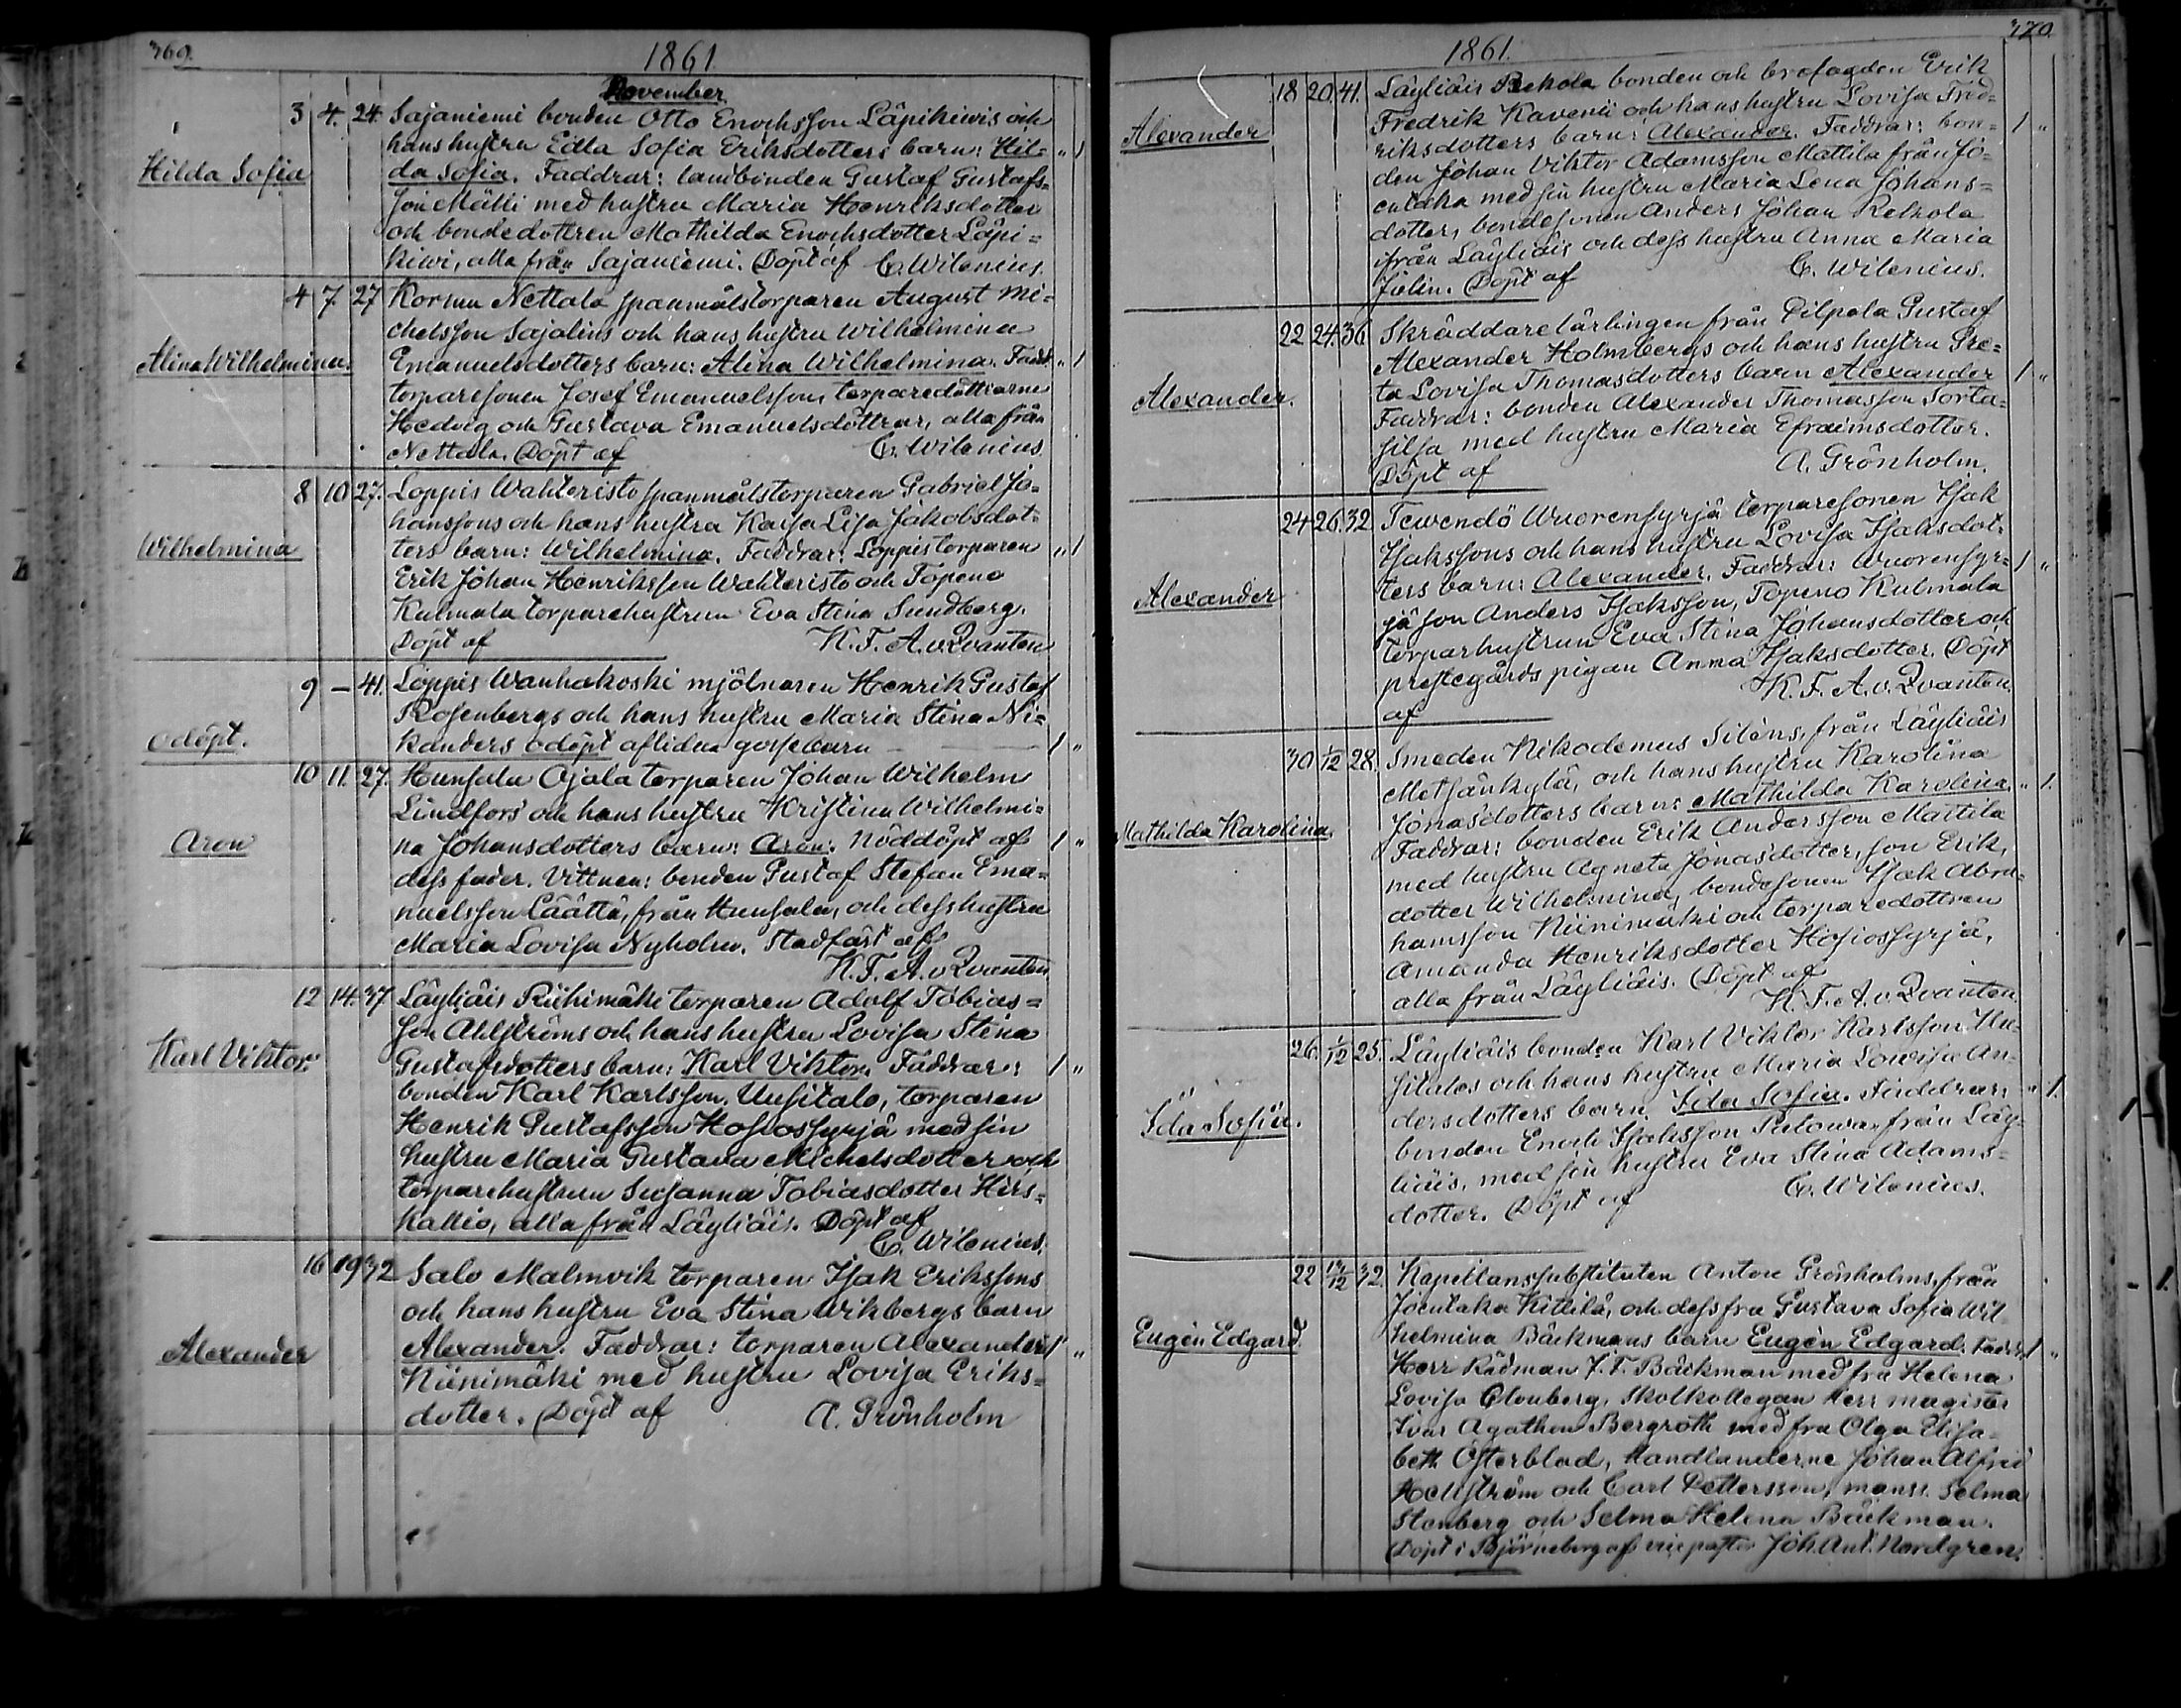 369.
1861.
November.
Hilda Sofia
3 4. 24. Sajaniemi bonden Otto Enochsson Läpikiwis och
hans hustru Edla Sofia Eriksdotters barn: Hil=
da Sofia. Faddrar: landbonden Gustaf Gustafs=
son Mälli med hustru Maria Henriksdotter
och bondedottren Mathilda Enochsdotter Läpi=
kiwi, alla från Sajaniemi. Döpt af C. Wilenius.
" 1
Alina Wilhelmina.
4 7. 27 Kormu Nettala spanmålstorparen August Mi=
chelsson Sajalins och hans hustru Wilhelmina
Emanuelsdotters barn: Alina Wilhelmina. Fadd.
torparesonen Josef Emanuelsson, torparedöttrarne
Hedvig och Gustava Emanuelsdöttrar, alla från
Nettala. Döpt af C. Wilenius.
" 1
Wilhelmina
8 10 27. Loppis Wahteristo spanmålstorparen Gabriel Jo=
hanssons och hans hustru Kajsa Lisa Jakobsdot=
ters barn: Wilhelmina. Faddrar: Loppis torparen
Erik Johan Henriksson Wahteristo och Topeno
Kulmala torparehustrun Eva Stina Sundberg.
Döpt af K. F. A. v. Qvanten
" 1
Odöpt.
9 — 41. Loppis Wanhakoski mjölnaren Henrik Gustaf
Rosenbergs och hans hustru Maria Stina Ni=
kanders odöpt aflidna gossebarn —
1 "
Aron
10 11. 27. Hunsala Ojala torparen Johan Wilhelm
Lindfors och hans hustru Kristina Wilhelmi=
na Johansdotters barn: Aron. Nöddöpt af
dess fader. Vittnen: bonden Gustaf Stefan Ema=
nuelsson Läättä, från Hunsala, och dess hustru
Maria Lovisa Nyholm. Stadfäst af
K. F. A. v Qvanten
1 "
Karl Viktor.
12 14. 37 Läyliäis Riihimäki torparen Adolf Tobias=
son Ahlströms och hans hustru Lovisa Stina
Gustafsdotters barn: Karl Viktor. Faddrar:
bonden Karl Karlsson Uusitalo, torparen
Henrik Gustafsson Hosiossyrjä med sin
hustru Maria Gustava Michelsdotter och
torparehustrun Susanna Tobiasdotter Hirs=
kallio, alla från Läyliäis. Döpt af
C. Wilenius.
1 "
Alexander
16 19 32 Salo Malmvik torparen Isak Erikssons
och hans hustru Eva Stina Wikbergs barn
Alexander. Faddrar: torparen Alexander
Niinimäki med hustru Lovisa Eriks=
dotter. Döpt af A. Grönholm
1 "
370.
1861.
Alexander
18 20. 41. Läyliäis Rekola bonden och brofogden Erik
Fredrik Kavenii och hans hustru Lovisa Fred=
riksdotters barn: Alexander. Faddrar: bon=
den Johan Viktor Adamsson Mattila från Jo=
entaka med sin hustru Maria Lena Johans=
dotter, bondesonen Anders Johan Rekola
från Läyliäis och dess hustru Anna Maria
Julin. Döpt af C. Wilenius.
1 "
Alexander.
22 24. 36 Skräddarelärlingen från Pilpala Gustaf
Alexander Holmbergs och hans hustru Gre=
ta Lovisa Thomasdotters barn Alexander
Faddrar: bonden Alexander Thomasson Sorta=
silja med hustru Maria Efraimsdotter.
Döpt af A. Grönholm.
1 "
Alexander
24 26. 32 Tewendö Wuorensyrjä torparesonen Isak
Isakssons och hans hustru Lovisa Isaksdot=
ters barn: Alexander. Faddrar: Wuorensyr=
jä son Anders Isaksson, Topeno Kulmala
torparhustrun Eva Stina Johansdotter och
prestegårds pigan Anna Isaksdotter. Döpt
af K. F. A. v. Qvanten.
1 "
Mathilda Karolina.
30 1/12 28. Smeden Nikodemus Siléns, från Läyliäis
Metsänkylä, och hans hustru Karolina
Jonasdotters barn: Mathilda Karolina.
Faddrar: bonden Erik Andersson Mattila
med hustru Agneta Jonasdotter, son Erik,
dotter Wilhelmina, bondesonen Isak Abra=
hamsson Niinimäki och torparedottren
Amanda Henriksdotter Hosiossyrjä,
alla från Läyliäis. Döpt af
K. F. A. v. Qvanten.
" 1.
Ida Sofia.
26. 1/12 25. Läyliäis bonden Karl Viktor Karlsson Uu=
sitalos och hans hustru Maria Lowisa An=
dersdotters barn Ida Sofia. Faddrar:
bonden Enoch Isaksson Palowa, från Läy=
liäis, med sin hustru Eva Stina Adams=
dotter. Döpt af C. Wilenius.
" 1.
Eugén Edgard.
22 /12 32. Kapellanssubstituten Anton Grönholms, från
Joentaka Kittilä, och dess fru Gustava Sofia Wil=
helmina Bäckmans barn Eugèn Edgard. Faddr.
Herr Rådman J. F. Bäckman med fru Helena
Lovisa Clouberg, Skolkollegan Herr magister
Ivar Agathon Bergroth med fru Olga Elisa=
beth Österblad, Handlanderne Johan Alfred
Hellström och Carl Pettersson, mams. Selma
Stenberg och Selma Helena Bäckman.
Döpt i Björneborg af vice pastor Joh. Ant. Nordgren.
1 "